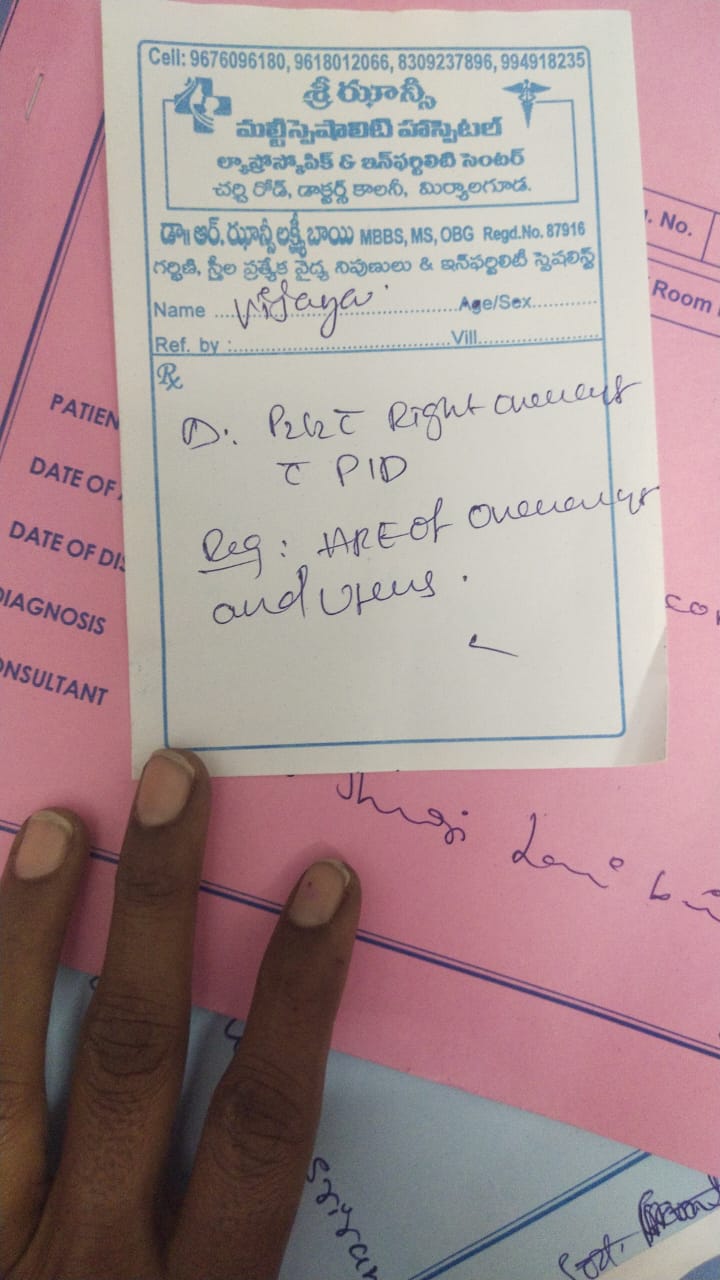 Cell: 9676096180, 9618012066, 8309237896, 994918235
శ్రీ ఝాన్సి
మల్టీస్పెషాలిటి హాస్పెటల్
ల్యాప్రోస్కోపిక్ & ఇన్‌ఫర్టిలిటి సెంటర్
చర్చి రోడ్, డాక్టర్స్ కాలనీ, మిర్యాలగూడ.
డా॥ ఆర్. ఝాన్సీ లక్ష్మీ బాయి MBBS, MS, OBG Regd.No. 87916
గర్భిణి, స్త్రీల ప్రత్యేక వైద్య నిపుణులు & ఇన్‌ఫర్టిలిటీ స్పెషలిస్ట్
Name Vijaya Age/Sex
Ref. by : Vill.
Rx
D: P2L2 c Right
c PID
Reg: of
and Uterus.
. No.
Room
PATIEN
DATE OF
DATE OF DIS
DIAGNOSIS
ONSULTANT